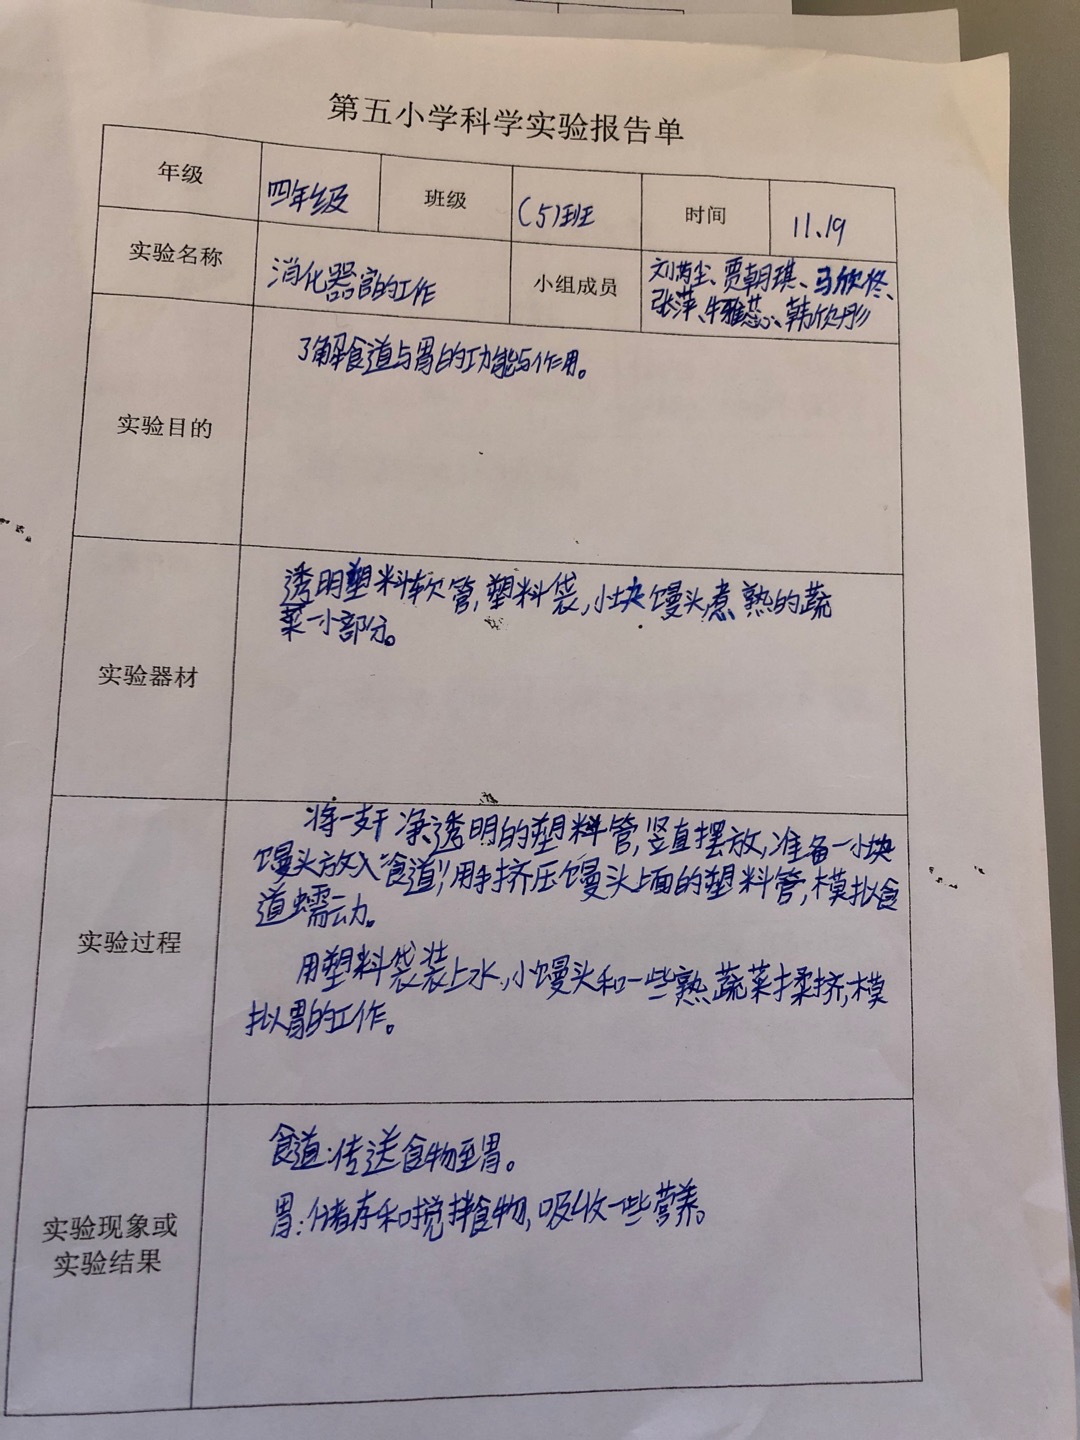 第五小学科学实验报告单
年级 四年级 班级 (5)班 时间 11.19
实验名称 消化器官的工作 小组成员 刘芮尘、贾朝琪、马欣佟、
张萍、牛雅蕊、韩欣彤
实验目的 了解食道与胃的功能与作用。
实验器材 透明塑料软管,塑料袋,小块馒头煮熟的蔬
菜一小部分。
实验过程 将一支干净透明的塑料管,竖直摆放,准备一小块
馒头放入“食道”,用手挤压馒头上面的塑料管,模拟食
道蠕动。
用塑料袋装上水,小馒头和一些熟蔬菜揉挤,模
拟胃的工作。
实验现象或
实验结果
食道:传送食物至胃。
胃:储存和搅拌食物,吸收一些营养。